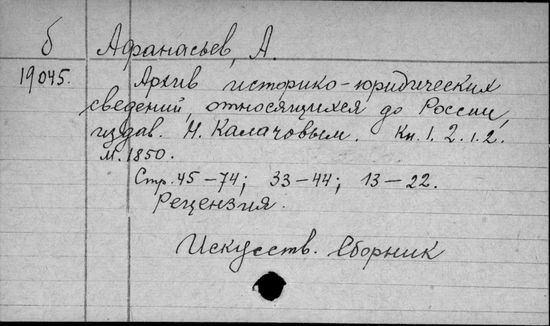 б Афанасьев, А.
19045. Архив историко-юридических
сведений, относящихся до России,
издав. Н. Калачовым. Кн. 1. 2. 1. 2.
М. 1850.
Стр. 45-74; 33-44; 13-22.
Рецензия.
Искусств. Сборник